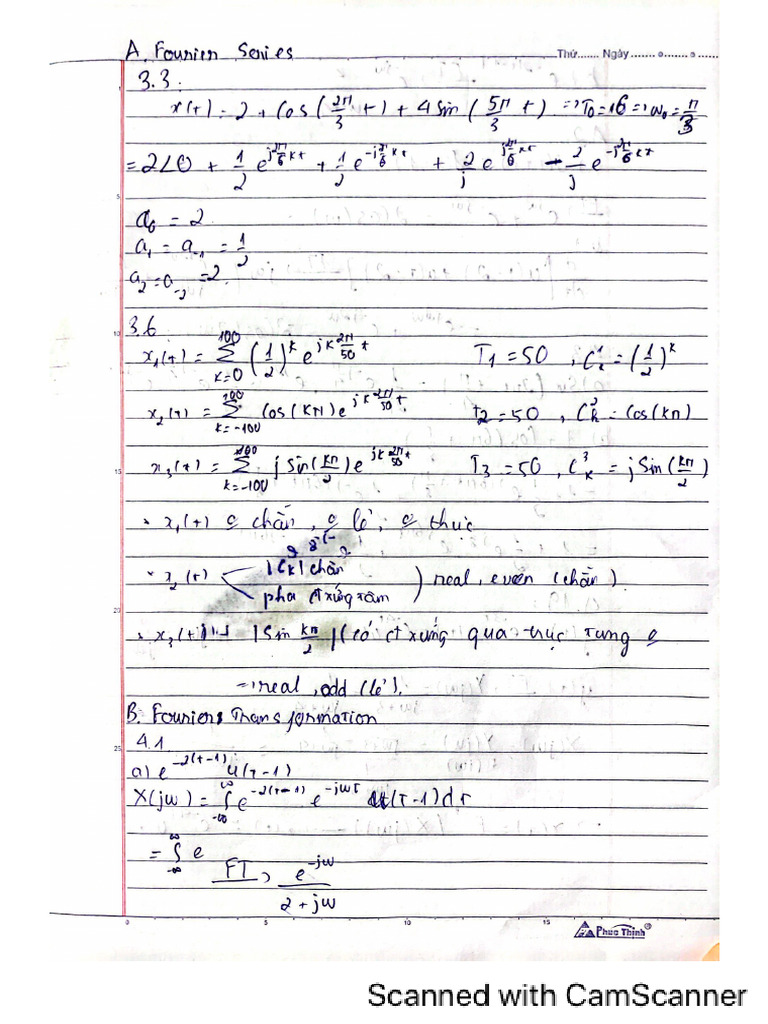 A. Fourier Series
Thứ....... Ngày.......
3.3:
x(t) = 2 + Cos(2π/3 t) + 4 Sin(5π/3 t) => T₀ = 6 => ω₀ = π/3
= 2∠0 + 1/2 e^{j 2π/6 kt} + 1/2 e^{-j 2π/6 kt} + 2/j e^{j 2π/6 kt} - 2/j e^{-j 2π/6 kt}
a₀ = 2
a₁ = a₋₁ = 1/2
a₂ = a₋₂ = 2.
3.6
x₁(t) = Σ_{k=0}^{100} (1/2)^k e^{jk 2π/50 t} T₁ = 50, C_k^1 = (1/2)^k
x₂(t) = Σ_{k=-100}^{100} Cos(kπ) e^{jk 2π/50 t}. t₂ = 50, C_k^2 = Cos(kπ)
x₃(t) = Σ_{k=-100}^{100} j Sin(kπ/2) e^{jk 2π/50 t} T₃ = 50, C_k^3 = j Sin(kπ/2)
x₁(t) chẵn, lẻ, thực
x₂(t) < |Ck| chẵn
pha xứng tâm
) real, even (chẵn).
x₃(t) |Sin kπ/2| (có xứng qua trục tung
=> real, odd (lẻ).
B. Fouriers Transformation
4.1
a) e^{-2(t-1)} u(t-1)
X(jω) = ∫_{-∞}^{∞} e^{-2(t-1)} e^{-jωt} u(t-1)dt
= ∫_{-∞}^{∞} e
FT> e^{-jω}/(2+jω)
0 5 10 15
Phuc Thinh®
Scanned with CamScanner